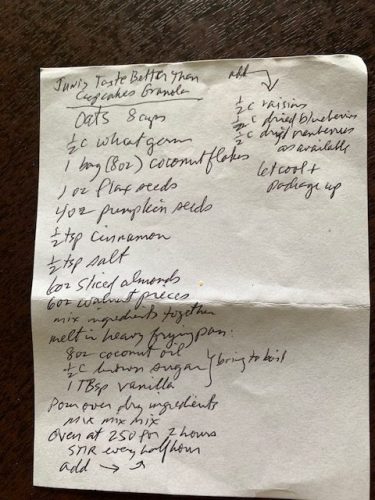 Juni's Taste Better Than
Cupcakes Granola
Oats 8 cups
½ c wheat germ
1 bag (8oz) coconut flakes
1 oz flax seeds
4oz pumpkin seeds
½ tsp cinnamon
½ tsp salt
6oz sliced almonds
6oz walnut pieces
mix ingredients together
melt in heavy frying pan:
8oz coconut oil
½ c brown sugar
1 TBsp vanilla
bring to boil
Pour over dry ingredients
mix mix mix
Oven at 250 for 2 hours
STIR every half hour
add →
add
½ c raisins
½ c dried blueberries
½ c dried cranberries
as available
let cool +
package up